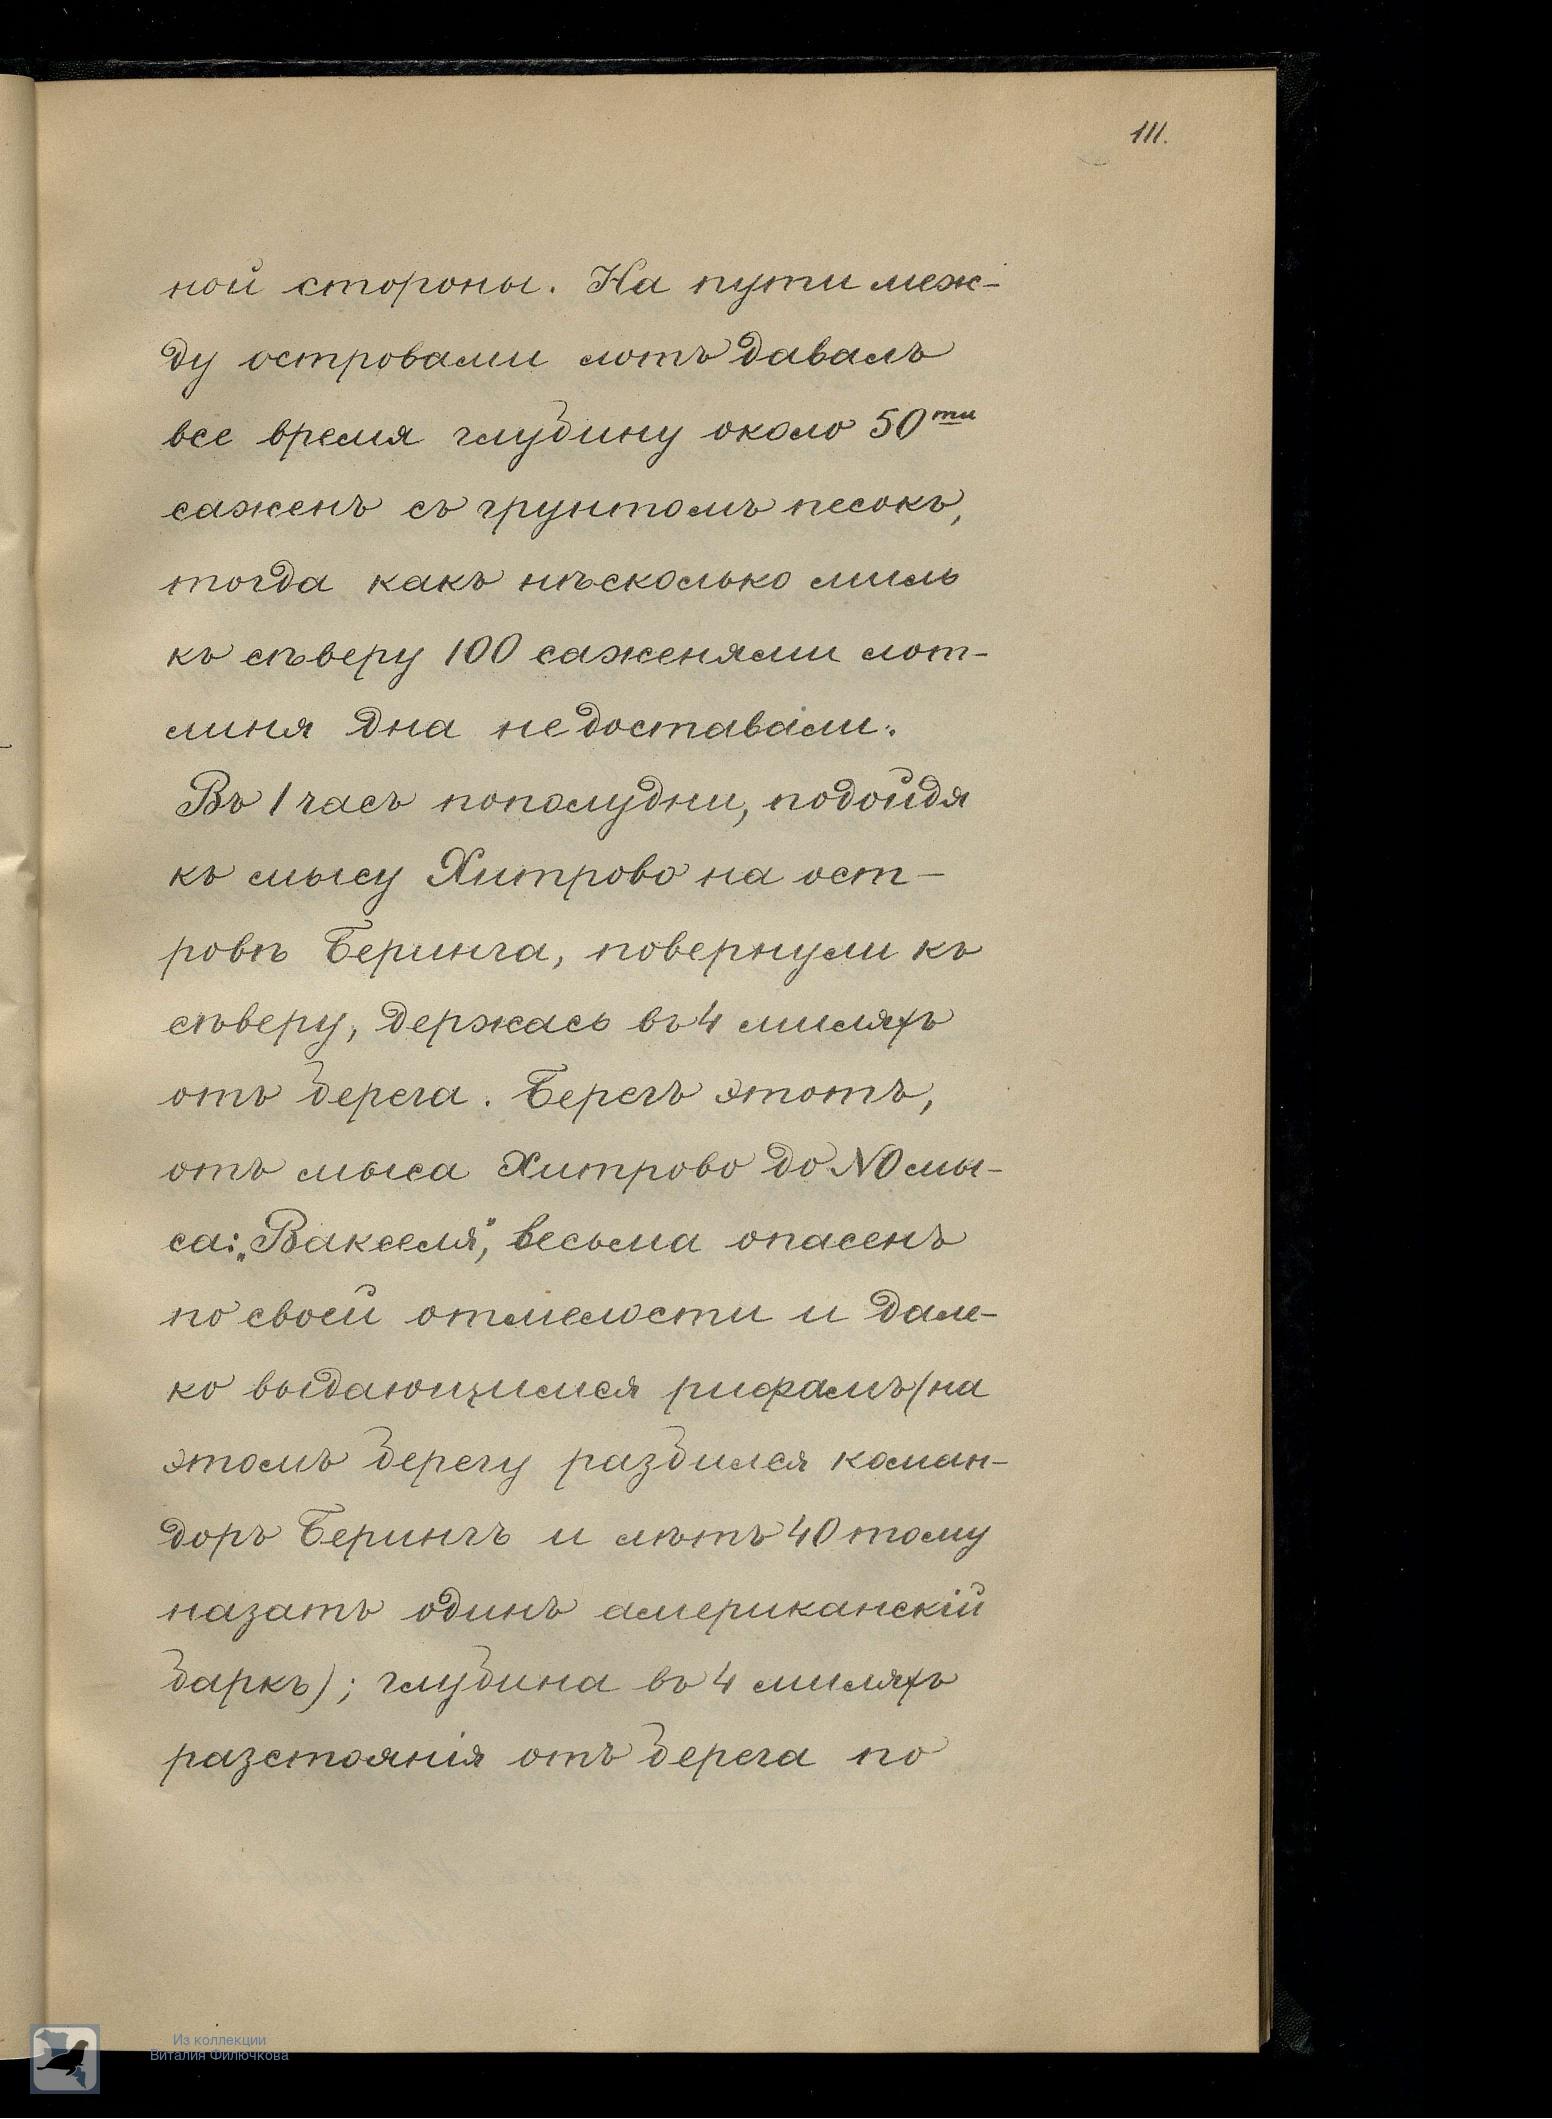 111.
ной стороны. На пути меж-
ду островами лотъ давалъ
все время глубину около 50ти
саженъ съ грунтомъ песокъ,
тогда какъ нѣсколько миль
къ сѣверу 100 саженями лот-
линя дна не доставали.
Въ 1 часъ пополудни, подойдя
къ мысу Хитрово на ост-
ровѣ Беринга, повернули къ
сѣверу, держась въ 4 миляхъ
отъ берега. Берегъ этотъ,
отъ мыса Хитрово до NO мы-
са: „Вакселя", весьма опасенъ
по своей отмелости и дале-
ко выдающимся рифамъ (на
этомъ берегу разбился коман-
доръ Берингъ и лѣтъ 40 тому
назатъ одинъ американскій
баркъ); глубина въ 4 миляхъ
разстоянія отъ берега по
Из коллекции
Виталия Филючкова